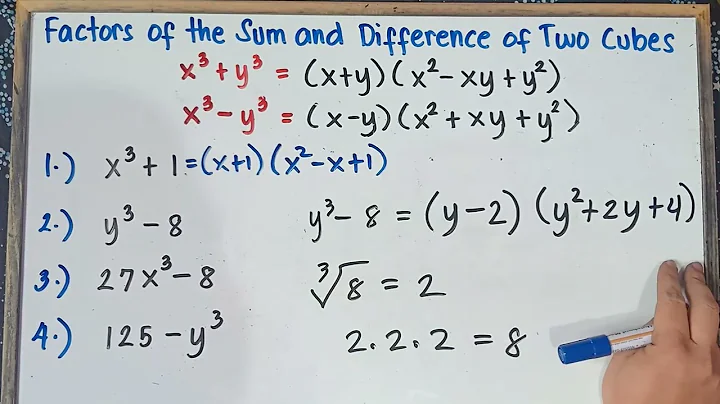 Factors of the Sum and Difference of Two Cubes
x³ + y³ = (x+y) (x² - xy + y²)
x³ - y³ = (x-y) (x² + xy + y²)
1.) x³ + 1 = (x+1) (x² - x + 1)
2.) y³ - 8 y³ - 8 = (y-2) (y² + 2y + 4)
3.) 27x³ - 8 ³√8 = 2
4.) 125 - y³ 2 . 2 . 2 = 8